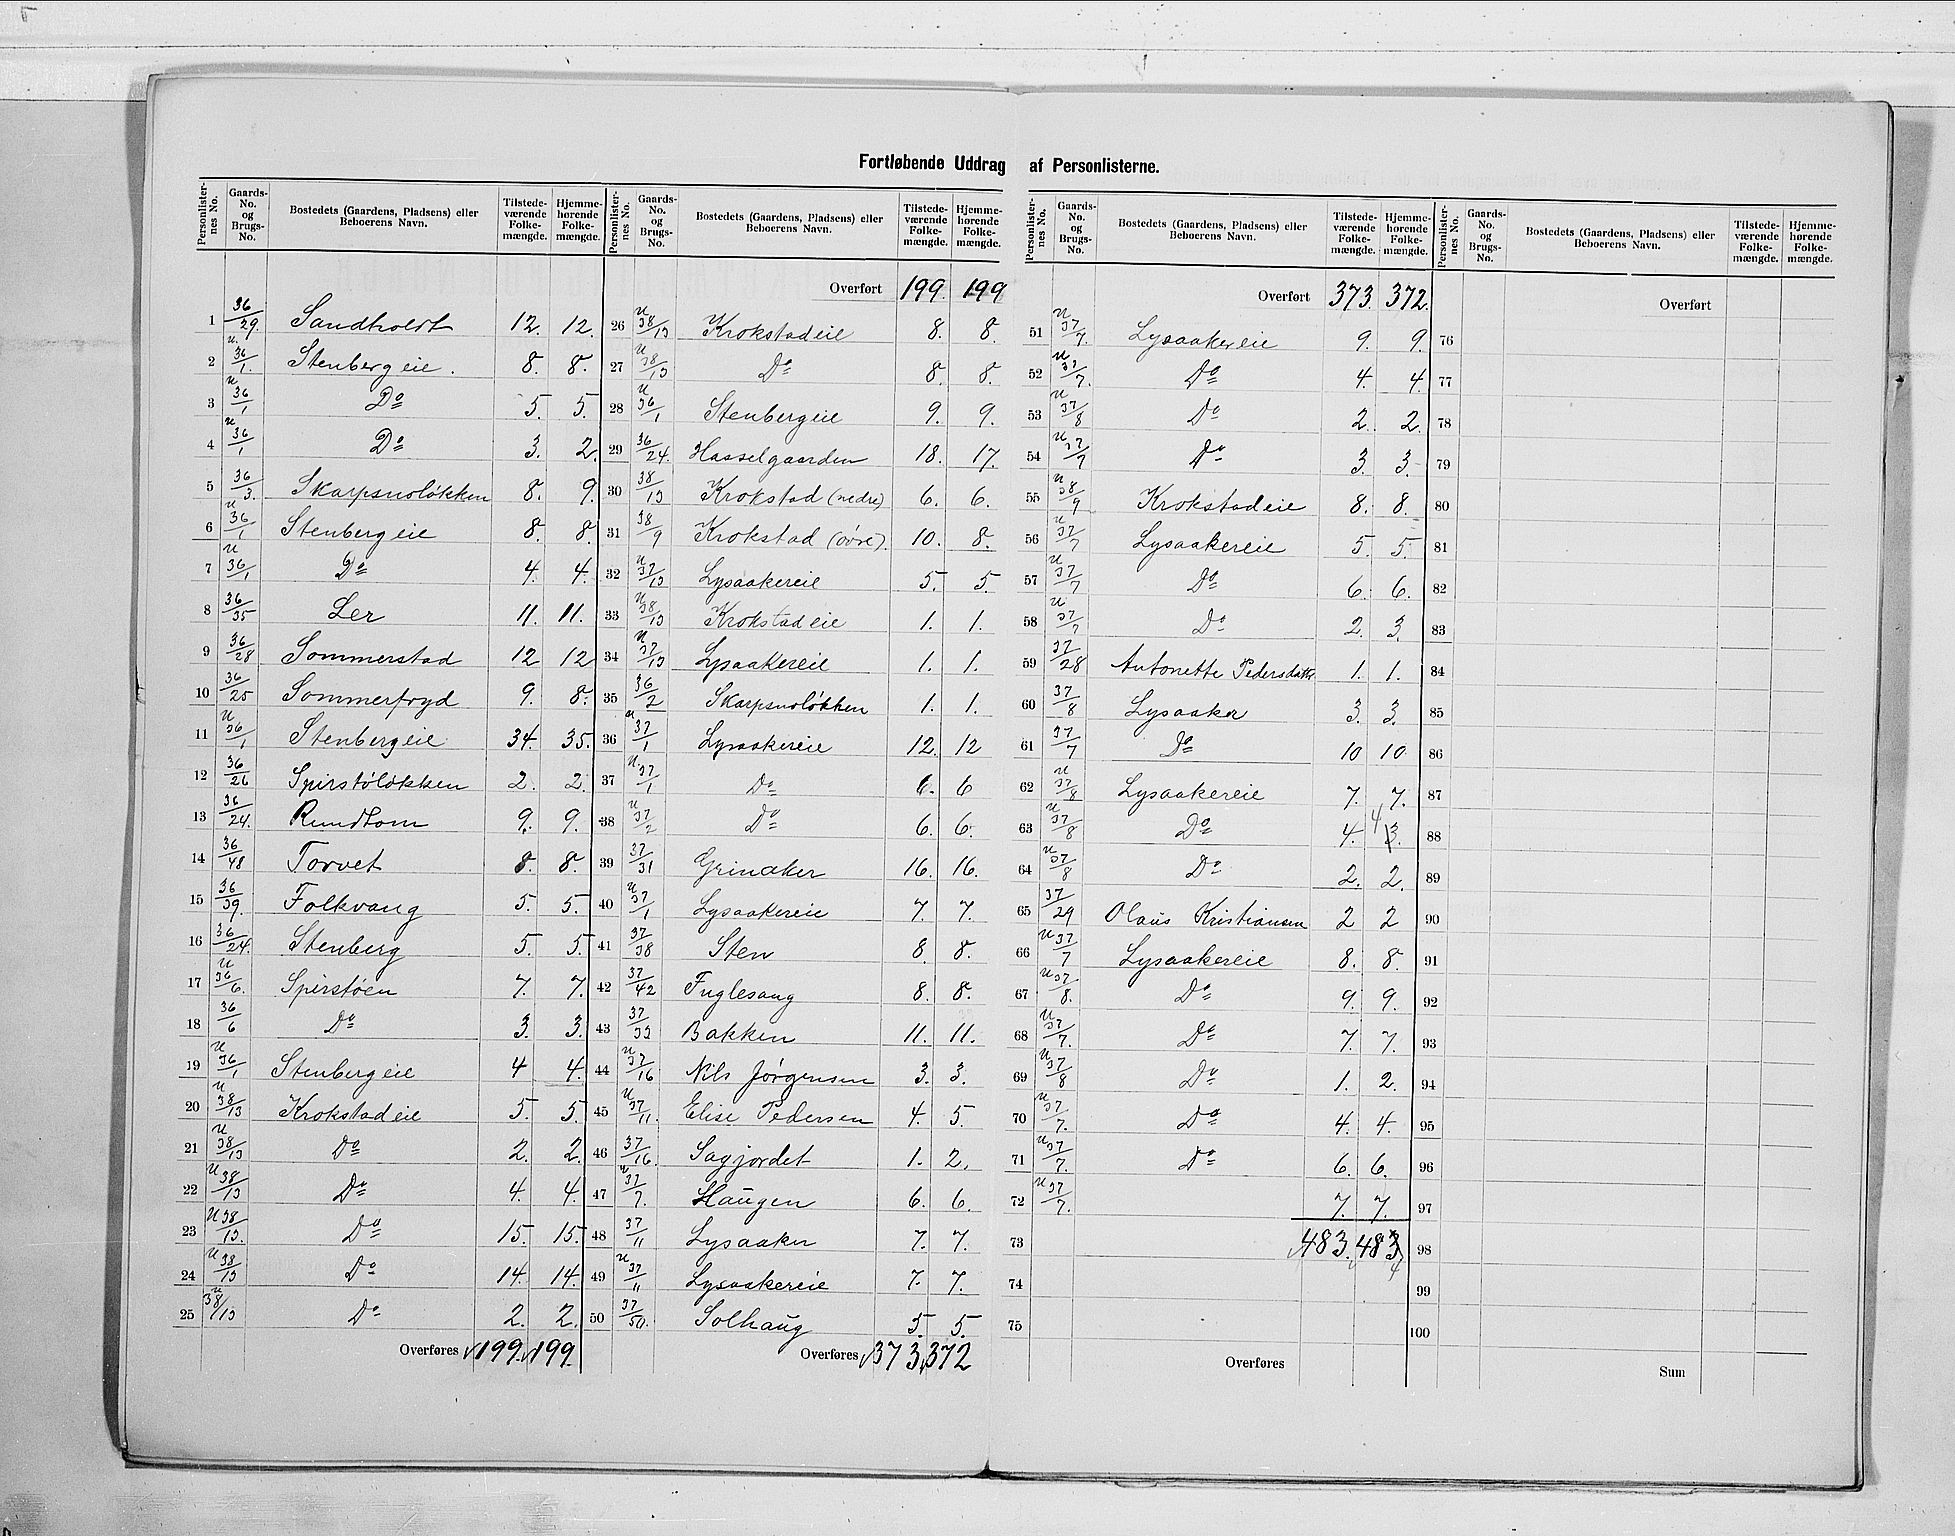 Fortløbende Uddrag af Personlisterne.
Personlister-nes No. | Gaards-No. og Brugs-No. | Bostedets (Gaardens, Pladsens) eller Beboerens Navn. | Tilstede-værende Folke-mængde. | Hjemme-hørende Folke-mængde.
1 36/29. Sandholdt 12. 12.
2 u 36/1. Stenbergeie. 8. 8.
3 u 36/1 Do 5. 5.
4 u 36/1 Do 3. 2.
5 36/3. Skarpsnoløkken 8. 9.
6 u 36/1 Stenbergeie 8. 8.
7 u 36/1 Do 4. 4.
8 36/35 Ler 11. 11.
9 36/28 Sommerstad 12 12
10 36/25 Sommerfryd 9. 8.
11 u 36/1 Stenbergeie 34. 35.
12 36/26 Spirstøløkken 2. 2.
13 36/24. Rundtom 9. 9.
14 36/48 Torvet 8. 8.
15 36/39. Folkvang 5. 5.
16 36/24. Stenberg 5. 5.
17 u 36/6. Spirstøen 7. 7.
18 36/6 Do 3. 3.
19 u 36/1 Stenbergeie 4 4.
20 u 38/13 Krokstadeie 5. 5.
21 u 38/13 Do 2. 2.
22 u 38/13 Do 4. 4.
23 u 38/13. Do 15. 15.
24 u 38/13 Do 14. 14.
25 u 38/13 Do 2. 2.
Overføres 199. 199.
Personlister-nes No. | Gaards-No. og Brugs-No. | Bostedets (Gaardens, Pladsens) eller Beboerens Navn. | Tilstede-værende Folke-mængde. | Hjemme-hørende Folke-mængde.
Overført 199. 199
26 u 38/13 Krokstadeie 8. 8.
27 u 38/13 Do 8. 8.
28 u 36/1 Stenbergeie 9. 9.
29 36/24. Hasselgaarden 18. 17.
30 38/13 Krokstad (nedre) 6. 6.
31 38/9 Krokstad (øvre). 10. 8.
32 u 37/13 Lysaakereie 5. 5.
33 u 38/13 Krokstadeie 1. 1.
34 u 37/13 Lysaakereie 1. 1.
35 36/2 Skarpsnoløkken 1. 1.
36 u 37/1 Lysaakereie 12. 12
37 u 37/1 Do 6. 6
38 u 37/2 Do 6. 6.
39 37/31 Grinaker 16. 16.
40 u 37/1 Lysaakereie 7. 7.
41 37/38 Sten 8. 8.
42 37/42 Fuglesang 8. 8.
43 37/33 Bakken 11. 11.
44 u 37/16 Nils Jørgensen 3. 3.
45 u 37/11. Elise Pedersen 4. 5.
46 37/16. Sagjordet 1. 2.
47 u 37/7. Haugen 6. 6.
48 37/11 Lysaaker 7. 7.
49 u 37/11 Lysaakereie 7. 7.
50 37/50. Solhaug 5. 5.
Overføres 373. 372
Personlister-nes No. | Gaards-No. og Brugs-No. | Bostedets (Gaardens, Pladsens) eller Beboerens Navn. | Tilstede-værende Folke-mængde. | Hjemme-hørende Folke-mængde.
Overført 373. 372.
51 u 37/7. Lysaakereie 9. 9.
52 u 37/7. Do 4. 4.
53 u 37/8 Do 2. 2.
54 u 37/7 Do 3. 3.
55 u 38/9 Krokstadeie 8. 8.
56 u 37/7 Lysaakereie 5. 5.
57 u 37/7 Do 6. 6.
58 u 37/7 Do 2. 3.
59 37/28 Antonette Pedersdatr. 1. 1.
60 37/8 Lysaaker 3. 3.
61 37/7 Do 10 10
62 u 37/8 Lysaakereie 7. 7.
63 u 37/8 Do 4. 4 3.
64 u 37/8 Do 2. 2.
65 37/29 Olaus Kristiansen 2 2
66 u 37/7 Lysaakereie 8. 8.
67 u 37/8. Do 9. 9.
68 u 37/7. Do 7. 7.
69 u 37/8 Do 1. 2.
70 u 37/7. Do 4. 4.
71 u 37/7. Do 6. 6.
72 u 37/7. 7. 7.
73 483. 483 4
74
75
Overføres
Personlister-nes No. | Gaards-No. og Brugs-No. | Bostedets (Gaardens, Pladsens) eller Beboerens Navn. | Tilstede-værende Folke-mængde. | Hjemme-hørende Folke-mængde.
Overført
76
77
78
79
80
81
82
83
84
85
86
87
88
89
90
91
92
93
94
95
96
97
98
99
100
Sum